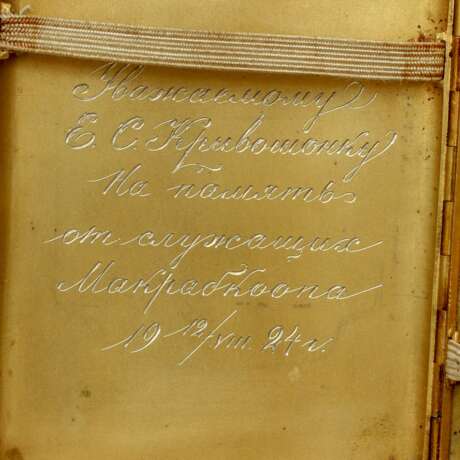 Уважаемому
Е. С. Кривошонку
На память
от служащих
Макрабкоопа
19 12/VIII. 24 г.